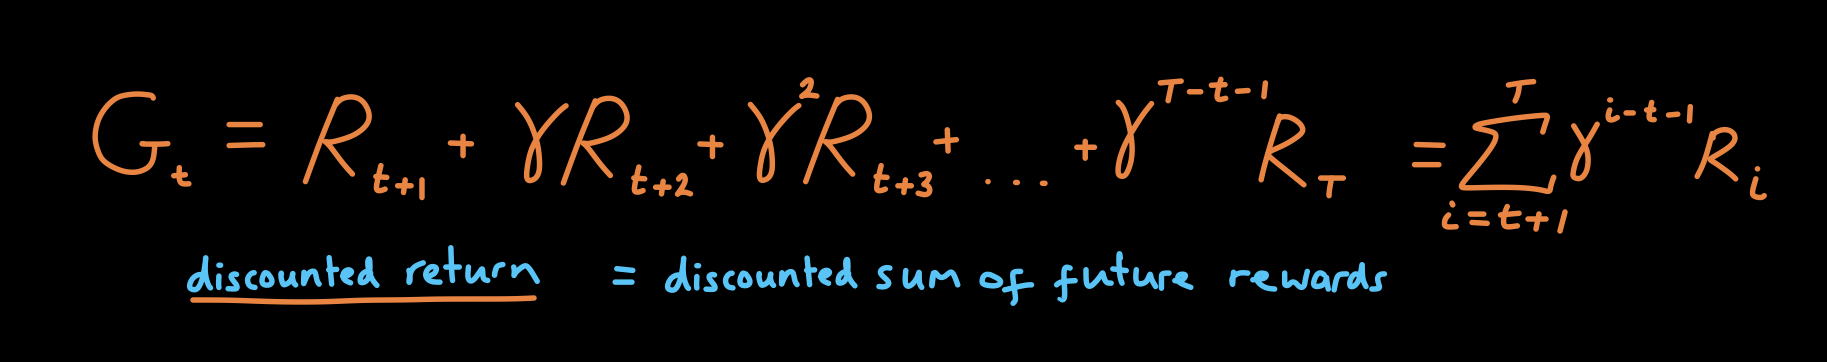 G_t = R_{t+1} + γR_{t+2} + γ²R_{t+3} + ... + γ^{T-t-1} R_T = ∑_{i=t+1}^{T} γ^{i-t-1} R_i
discounted return = discounted sum of future rewards